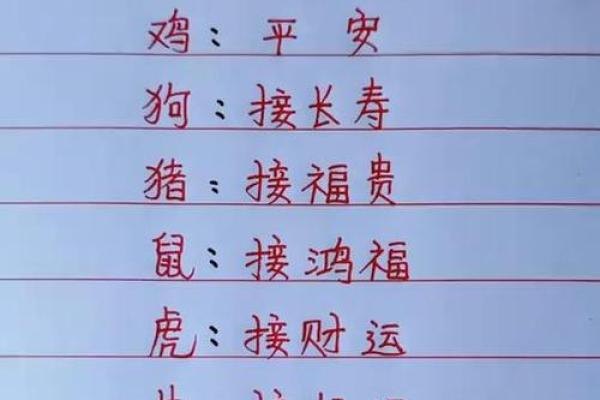 鸡：平安
狗：接长寿
猪：接福贵
鼠：接鸿福
虎：接财运